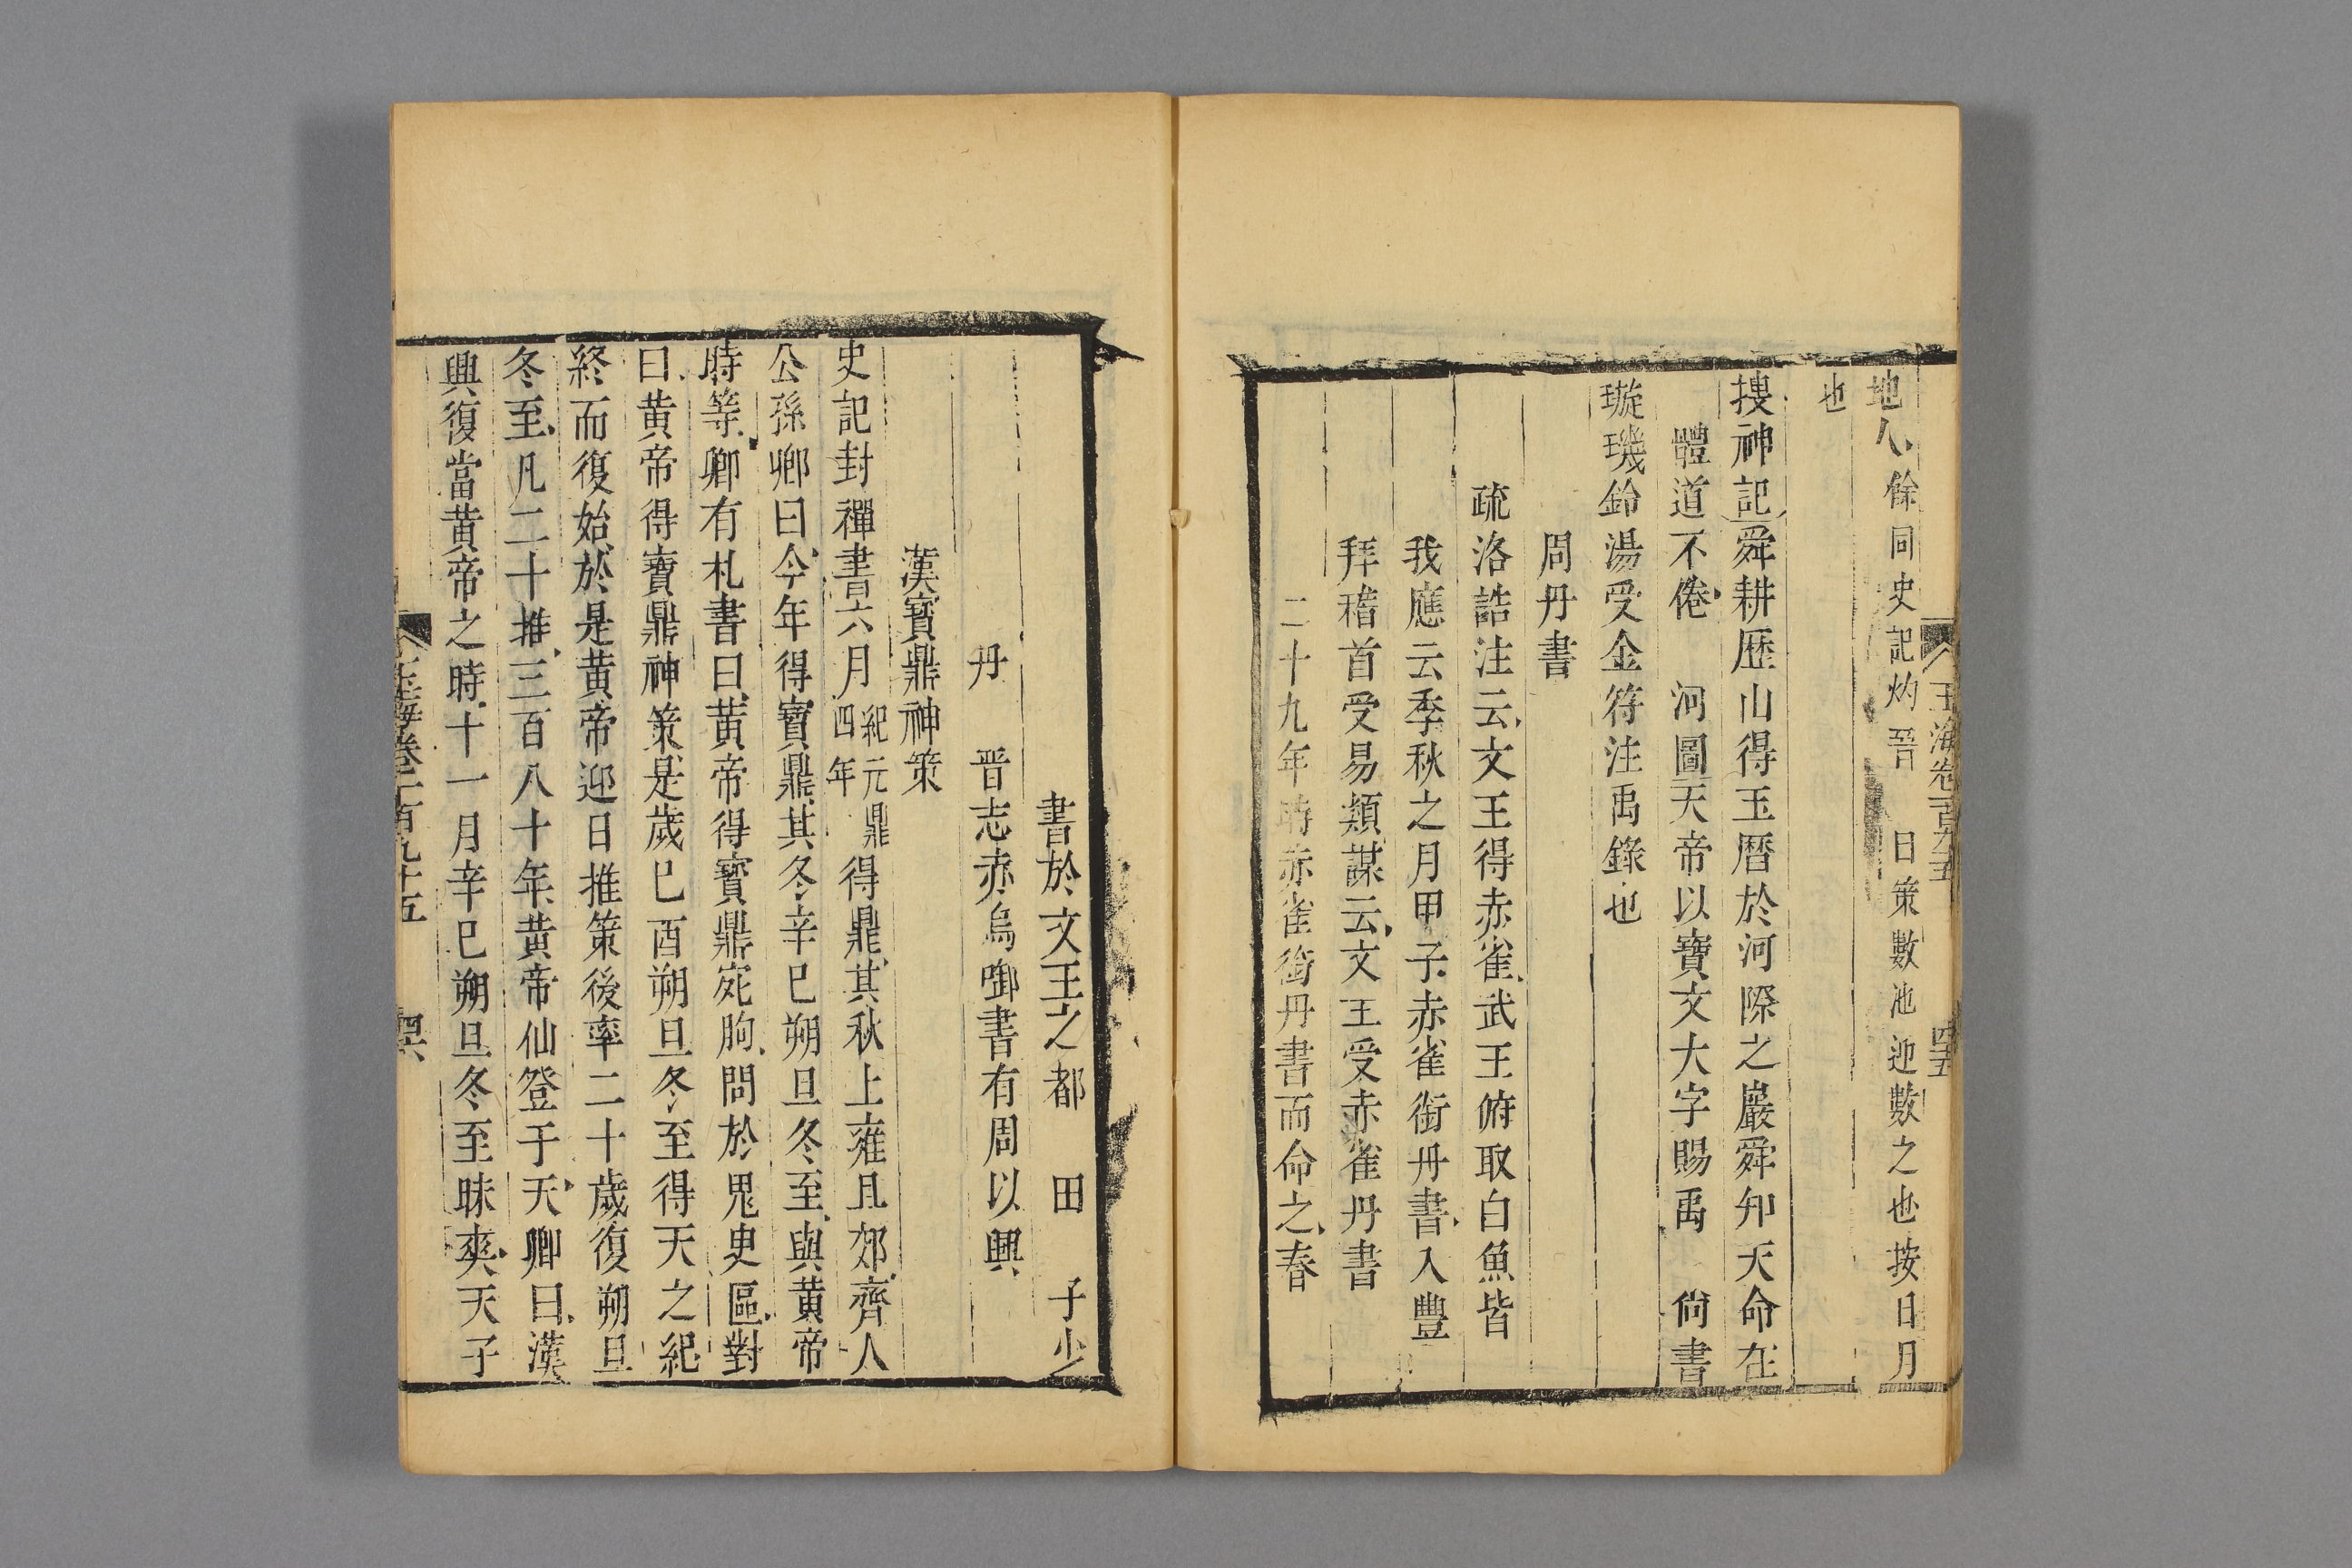 玉海卷一百九十五
四五
地八餘同史記灼晉 日策數池迎數之也按日月
也
搜神記舜耕歷山得玉曆於河際之巖舜知天命在
體道不倦 河圖天帝以寶文大字賜禹 尚書
璇璣鈴湯受金符注禹錄也
周丹書
疏洛誥注云文王得赤雀武王俯取白魚皆
我應云季秋之月甲子赤雀銜丹書入豐
拜稽首受易類謀云文王受赤雀丹書
二十九年時赤雀銜丹書而命之春
書於文王之都 田 子少
丹 晋志赤烏啣書有周以興
漢寶鼎神策
史記封禪書六月紀元鼎四年得鼎其秋上雍且郊齊人
公孫卿曰今年得寶鼎其冬辛巳朔旦冬至與黃帝
時等卿有札書曰黃帝得寶鼎宛朐問於鬼臾區對
曰黃帝得寶鼎神策是歲巳酉朔旦冬至得天之紀
終而復始於是黃帝迎日推策後率二十歲復朔旦
冬至凡二十推三百八十年黃帝仙登于天卿曰漢
興復當黃帝之時十一月辛巳朔旦冬至昧爽天子
玉海卷一百九十五
四六